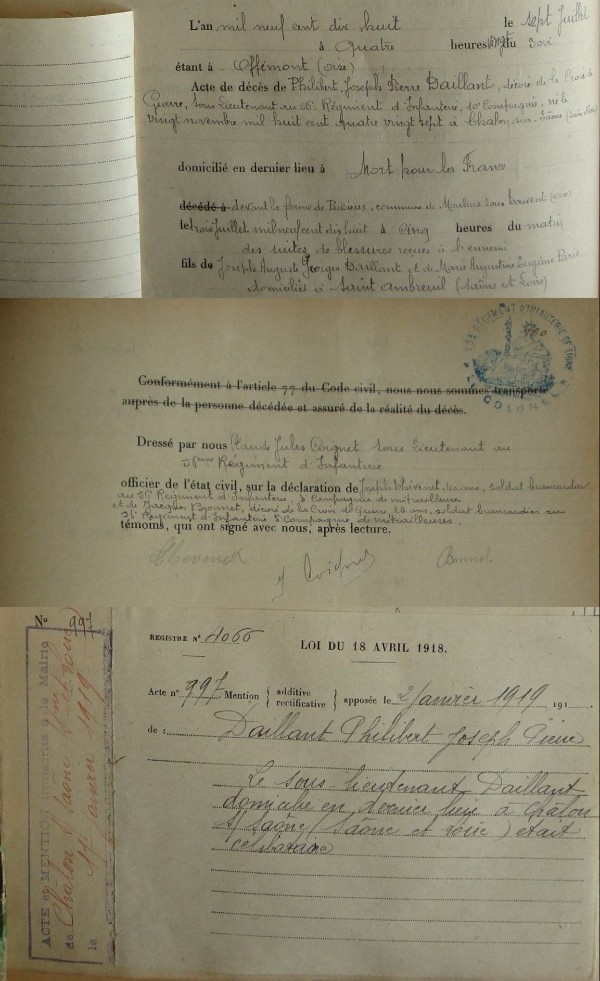 L'an mil neuf cent dix huit le sept Juillet
à Quatre heures vingt du soir
étant à Offémont (Oise)
Acte de décès de Philibert Joseph Pierre Daillant, décoré de la Croix de
Guerre, Sous Lieutenant au 56e Régiment d'Infanterie, 10e Compagnie, né le
vingt novembre mil huit cent quatre vingt sept à Chalon sur Saône
domicilié en dernier lieu à Mort pour la France
décédé à devant la ferme de Puiseux, commune de Moulins sous Touvent (Oise)
le trois Juillet mil neuf cent dix huit à cinq heures du matin
des suites de blessures reçues à l'ennemi
fils de Joseph Auguste Georges Daillant, et de Marie Augustine Eugénie Paris
domiciliés à Saint Ambreuil (Saône et Loire)
RÉGIMENT D'INFANTERIE DE LIGNE
LE COLONEL
Conformément à l'article 77 du Code civil, nous nous sommes transporté
auprès de la personne décédée et assuré de la réalité du décès.
Dressé par nous Claude Jules Coignet Sous Lieutenant au
56ème Régiment d'Infanterie
officier de l'état civil, sur la déclaration de Joseph Thévenet, ans, soldat brancardier
au 56e Régiment d'Infanterie, 3e Compagnie de mitrailleuses
et de Jacques Bonnet, décoré de la Croix de Guerre, 24 ans, soldat brancardier au
56e Régiment d'Infanterie Compagnie de mitrailleuses.
témoins, qui ont signé avec nous, après lecture.
Thevenet
Coignet
Bonnet
No 997
ACTE et MENTION transcrits à la Mairie
de Châlon s/ Saône (Sne et Loire)
le janvier 1919
REGISTRE No 4066
LOI DU 18 AVRIL 1918.
Acte no 997 Mention additive rectificative apposée le 2 Janvier 1919 191
de : Daillant Philibert Joseph Pierre
Le sous-lieutenant Daillant
domicilié en dernier lieu à Châlon
s/ Saône (Saône et Loire) était
célibataire